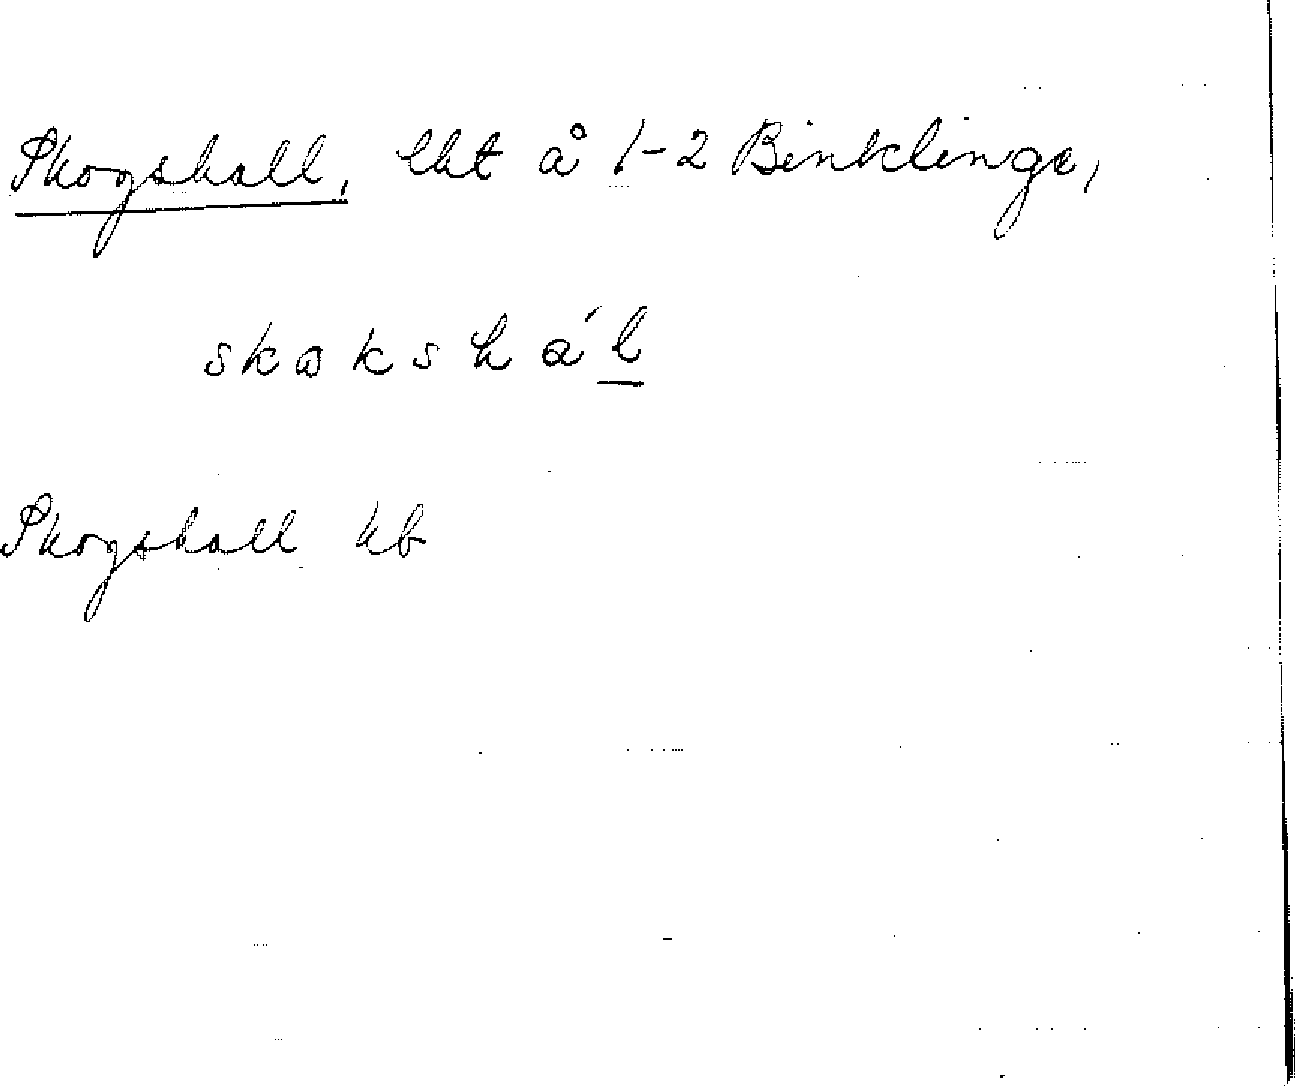 Skogshall, lht å 1-2 Binklinge,
skɷkshá l̲
Skogshall kb